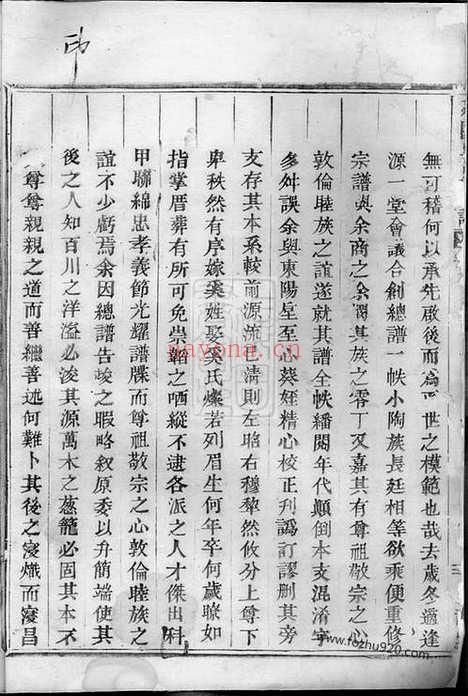 印
無可稽何以承先啟後而為 世之模範也哉去歲冬適逢
源一堂會議合創總譜一帙小陶族長廷相等欲乘便重修
宗譜與余商之余閔其族之零丁又嘉其有尊祖敬宗之心
敦倫睦族之誼遂就其譜全帙繙閱年代顛倒本支混淆字
多舛誤余與東陽呈至心葵姪精心校正刋譌訂謬刪其旁
支存其本系較前源流已清則左昭右穆犂然攸分上尊下
卑秩然有序嫁奚姓娶奚氏燦若列眉生何年卒何歲瞭如
指掌厝葬有所可免掌譜之哂縱不逮各派之人才傑出科
甲聯綿忠孝義節光耀譜牒而尊祖敬宗之心敦倫睦族之
誼不少虧焉余因總譜告竣之暇略叙原委以弁簡端使其
後之人知百川之洋溢必浚其源萬木之葱籠必固其本不
尊尊親親之道而善繼善述何難卜其後之寖熾而寖昌
nayona.cn
www.fozhu920.com